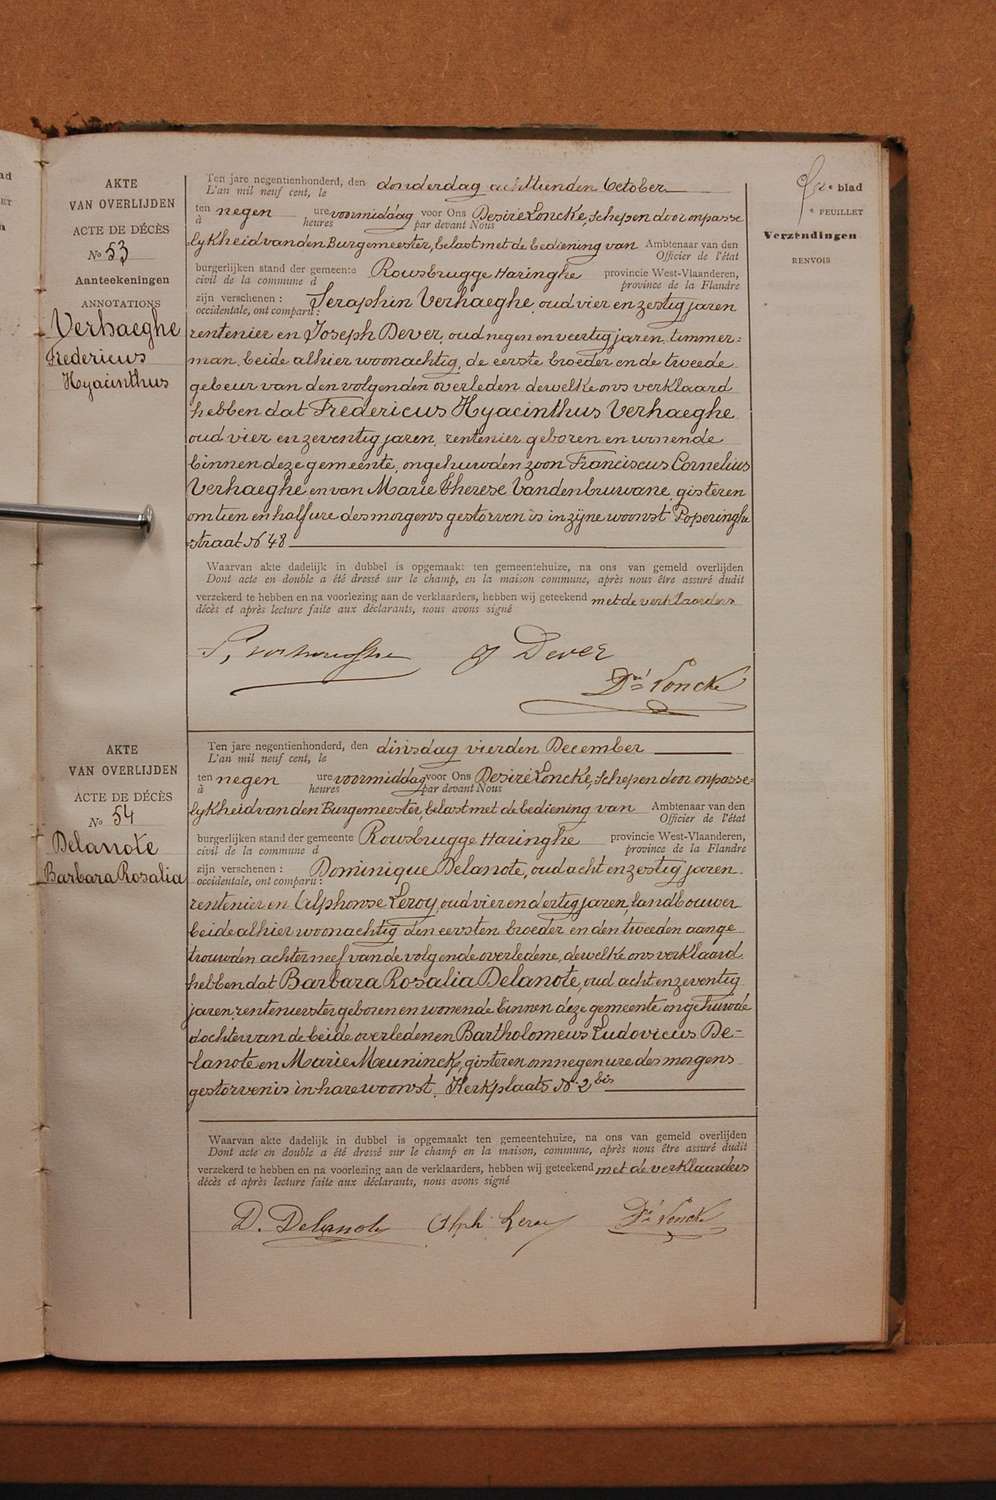 AKTE
VAN OVERLIJDEN
ACTE DE DÉCÈS
No 53
Aanteekeningen
ANNOTATIONS
Verhaeghe
Fredericus
Hyacinthus
Ten jare negentienhonderd, den donderdag achttienden October
L'an mil neuf cent, le
ten negen ure voormiddag voor Ons Desiré Loncke, schepen door onpasse
à heures par devant Nous
lykheid van den Burgemeester, belast met de bediening van Ambtenaar van den
Officier de l'état
burgerlijken stand der gemeente Rousbrugge Haringhe provincie West-Vlaanderen,
civil de la commune d province de la Flandre
zijn verschenen : Seraphin Verhaeghe, oud vier en zestig jaren
occidentale, ont comparu :
rentenier en Joseph Dever, oud negen en veertig jaren, timmer=
man, beide alhier woonachtig, de eerste broeder en de tweede
gebeur van den volgenden overleden dewelke ons verklaard
hebben dat Fredericus Hyacinthus Verhaeghe
oud vier en zeventig jaren, rentenier geboren en wonende
binnen deze gemeente, ongehuwden zoon Franciscus Cornelius
Verhaeghe en van Marie Therese Vandenbruwane, gisteren
om tien en half ure des morgens gestorven is in zijne woonst Poperinghe
straat No 48
Waarvan akte dadelijk in dubbel is opgemaakt ten gemeentehuize, na ons van gemeld overlijden
Dont acte en double a été dressé sur le champ, en la maison commune, après nous être assuré dudit
verzekerd te hebben en na voorlezing aan de verklaarders, hebben wij geteekend met de verklaarders
décès et après lecture faite aux déclarants, nous avons signé
S, verhaeghe J Dever
Dré Loncke
AKTE
VAN OVERLIJDEN
ACTE DE DÉCÈS
No 54
Delanote
Barbara Rosalia
Ten jare negentienhonderd, den dinsdag vierden December
L'an mil neuf cent, le
ten negen ure voormiddag voor Ons Desiré Loncke, schepen door onpasse=
à heures par devant Nous
lykheid van den Burgemeester, belast met de bediening van Ambtenaar van den
Officier de l'état
burgerlijken stand der gemeente Rousbrugge Haringhe provincie West-Vlaanderen,
civil de la commune d province de la Flandre
zijn verschenen : Dominique Delanote, oud acht en zestig jaren
occidentale, ont comparu :
rentenier en Alphonse Leroy, oud vier en dertig jaren, landbouwer
beide alhier woonachtig den eersten broeder en den tweeden aange
trouwden achterneef van de volgende overledene, dewelke ons verklaard
hebben dat Barbara Rosalia Delanote, oud acht en zeventig
jaren, rentenierster geboren en wonende binnen deze gemeente ongehuwde
dochter van de beide overledenen Bartholomeus Ludovicus De-
lanote en Marie Meuninck, gisteren om negen ure des morgens
gestorven is in hare woonst. Kerkplaats No 2 bis
Waarvan akte dadelijk in dubbel is opgemaakt ten gemeentehuize, na ons van gemeld overlijden
Dont acte en double a été dressé sur le champ en la maison, commune, après nous être assuré dudit
verzekerd te hebben en na voorlezing aan de verklaarders, hebben wij geteekend met de verklaarders
décès et après lecture faite aux déclarants, nous avons signé
D. Delanote Alph. Leroy Dré Loncke
e blad
e FEUILLET
Verzendingen
RENVOIS